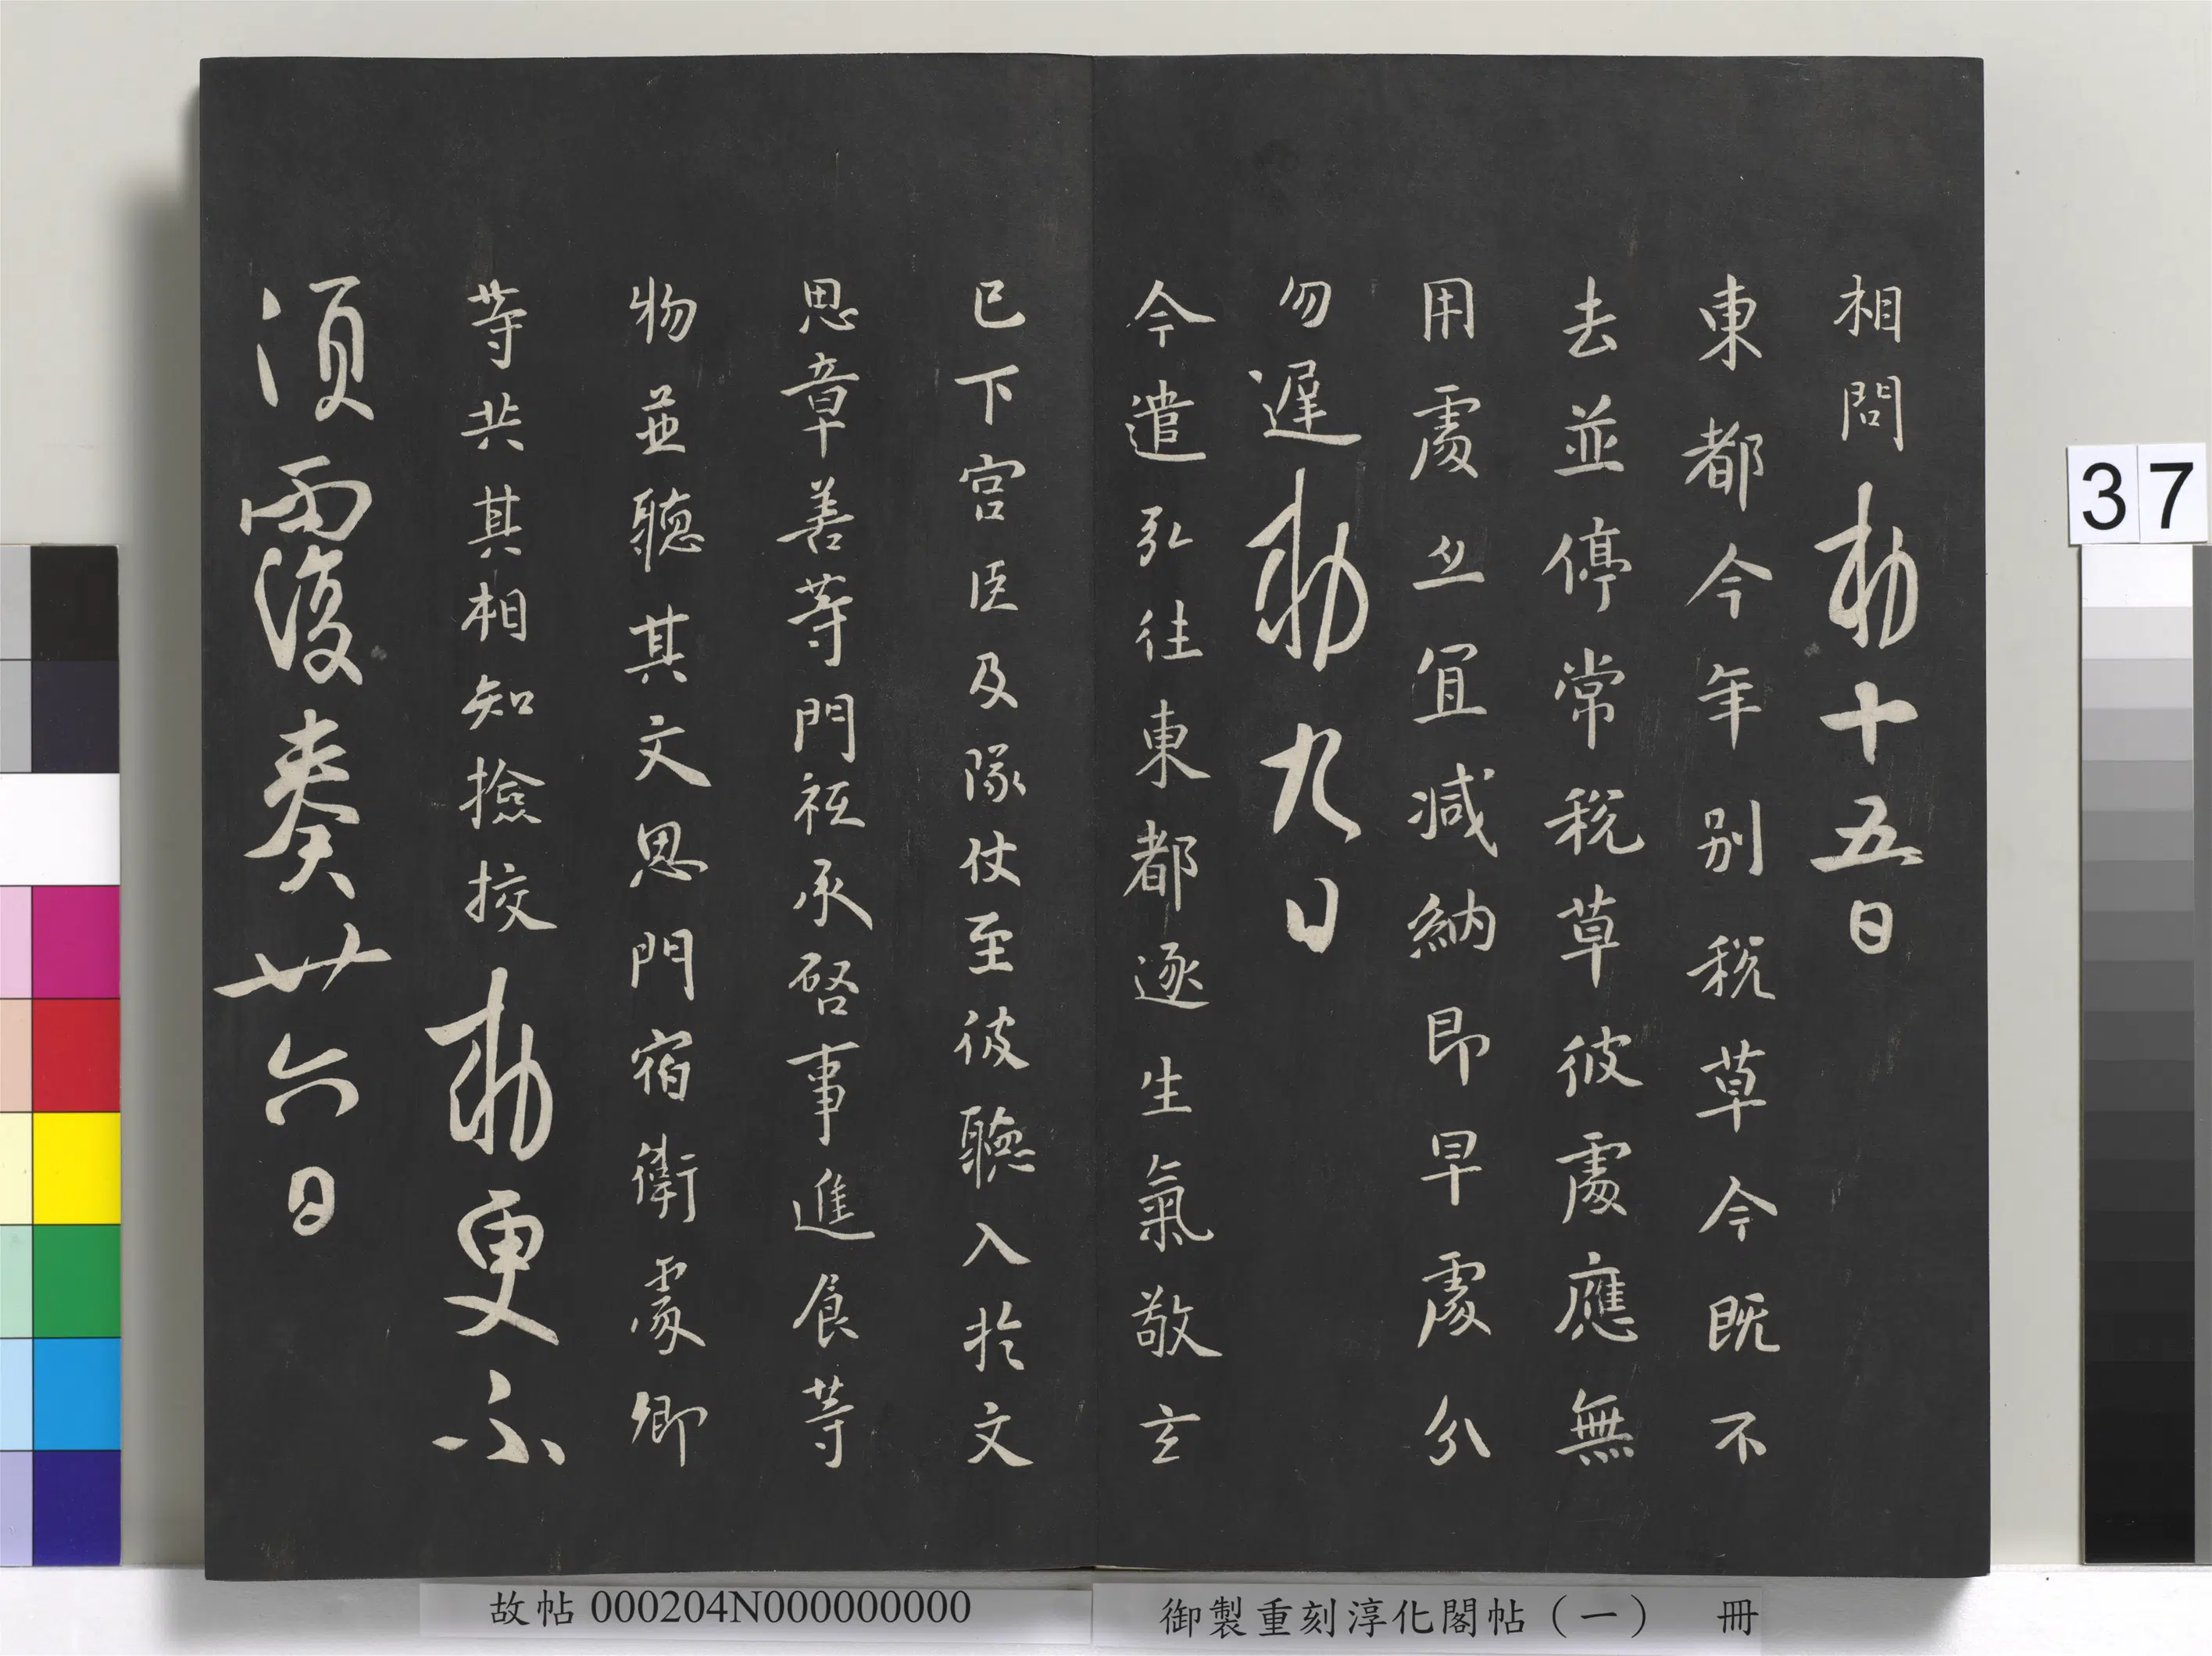 相問勅十五日
東都今年別税草今既不
去並停常税草彼處應無
用處亦宜減納即早處分
勿遲勅九日
今遣弘往東都逐生氣敬玄
已下宮臣及隊仗至彼聽入於文
思章善等門祗承啓事進食等
物並聽其文思門宿衛處卿
等共其相知撿挍勅更不
須覆奏廿六日
37
故帖 000204N000000000
御製重刻淳化閣帖（一） 冊